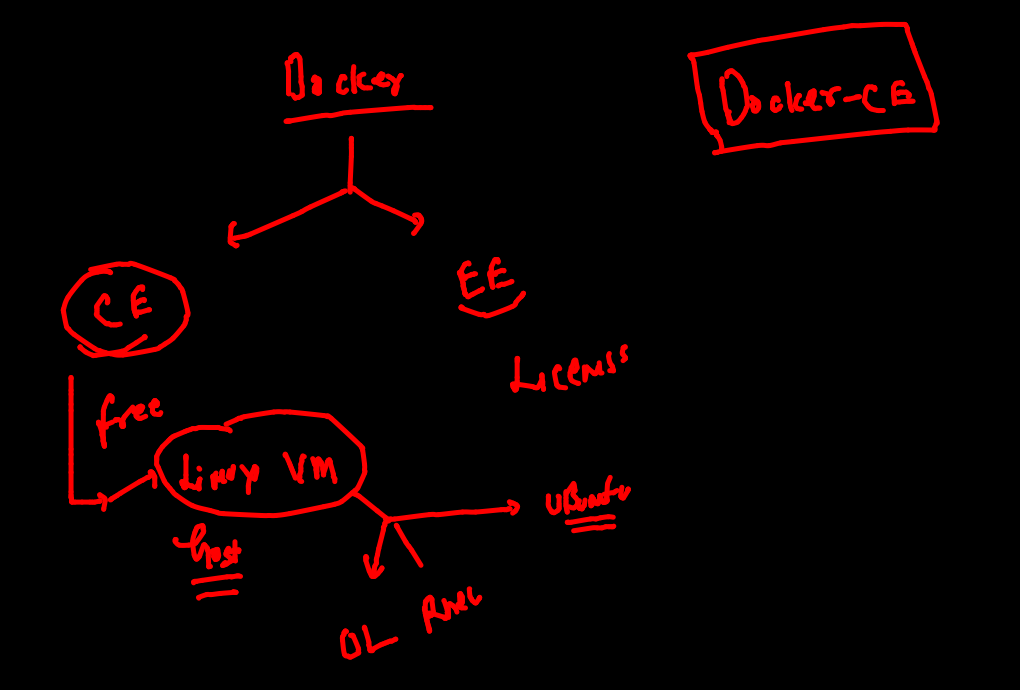 Docker
Docker-CE
CE
EE
Licenss
free
Linux VM
UBuntu
host
OL
Rhel